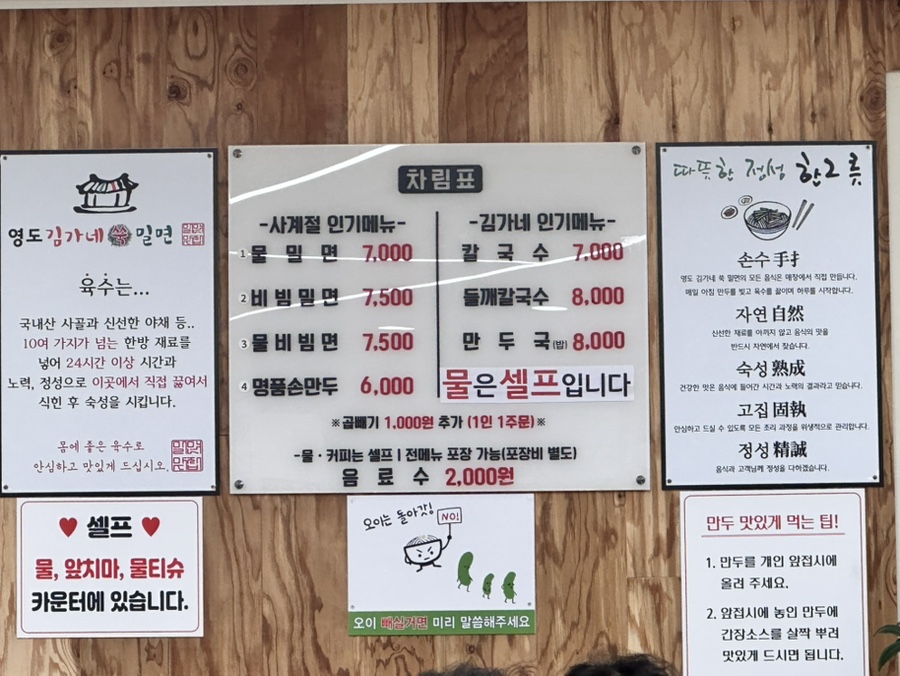 영도김가네 쑥 밀면
육수는...
국내산 사골과 신선한 야채 등..
10여 가지가 넘는 한방 재료를
넣어 24시간 이상 시간과
노력, 정성으로 이곳에서 직접 끓여서
식힌 후 숙성을 시킵니다.
몸에 좋은 육수로
안심하고 맛있게 드십시오.
♥ 셀프 ♥
물, 앞치마, 물티슈
카운터에 있습니다.
차림표
-사계절 인기메뉴-
1 물밀면 7,000
2 비빔밀면 7,500
3 물비빔면 7,500
4 명품손만두 6,000
-김가네 인기메뉴-
칼국수 7,000
들깨칼국수 8,000
만두국(밥) 8,000
물은셀프입니다
※곱빼기 1,000원 추가 (1인 1주문)※
-물·커피는 셀프 | 전메뉴 포장 가능(포장비 별도)
음료수 2,000원
오이는 돌아갓!
NO!
오이 빼실거면 미리 말씀해주세요
따뜻한 정성 한그릇
손수 手扌
영도 김가네 쑥 밀면의 모든 음식은 매장에서 직접 만듭니다.
매일 아침 만두를 빚고 육수를 끓이며 하루를 시작합니다.
자연 自然
신선한 재료를 아끼지 않고 음식의 맛을
반드시 자연에서 찾습니다.
숙성 熟成
건강한 맛은 음식에 들어간 시간과 노력의 결과라고 믿습니다.
고집 固執
안심하고 드실 수 있도록 모든 조리 과정을 위생적으로 관리합니다.
정성 精誠
음식과 고객님께 정성을 다하겠습니다.
만두 맛있게 먹는 팁!
1. 만두를 개인 앞접시에
올려 주세요.
2. 앞접시에 놓인 만두에
간장소스를 살짝 뿌려
맛있게 드시면 됩니다.